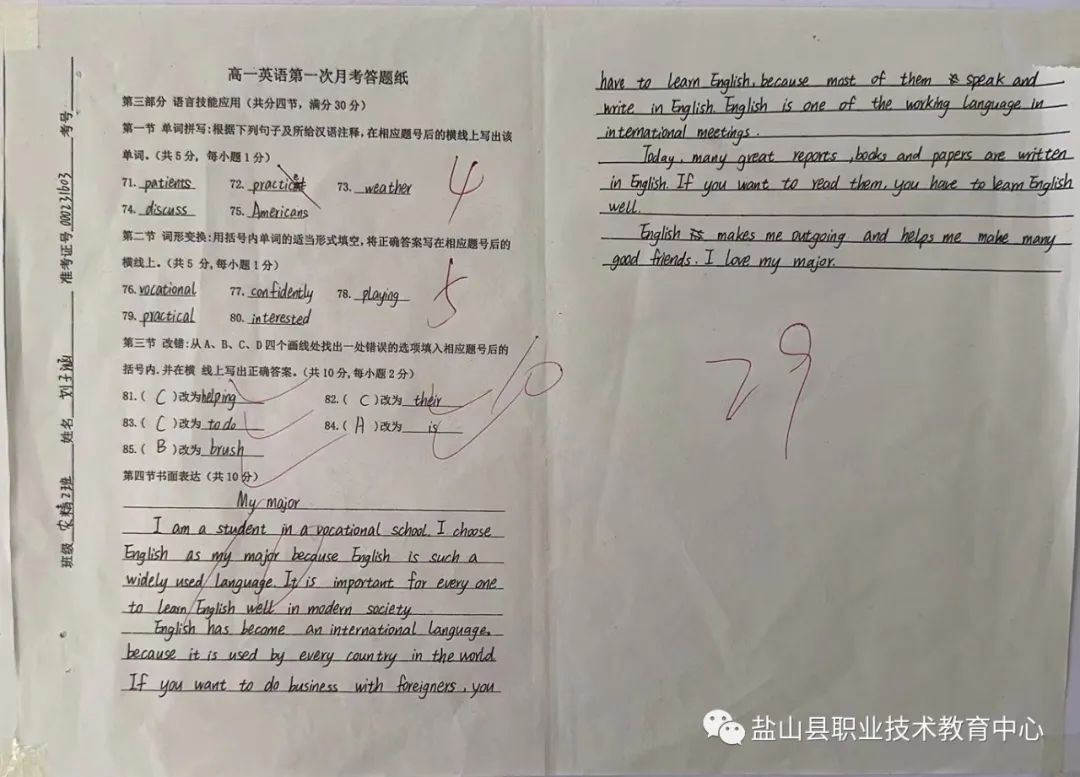 高一英语第一次月考答题纸
第三部分 语言技能应用(共分四节,满分30分)
第一节 单词拼写:根据下列句子及所给汉语注释,在相应题号后的横线上写出该
单词。(共5分,每小题1分)
71. patients 72. 73. weather
4
74. discuss 75. Americans
第二节 词形变换:用括号内单词的适当形式填空,将正确答案写在相应题号后的
横线上。(共5分,每小题1分)
76. vocational 77. confidently 78. playing
5
79. practical 80. interested
第三节 改错:从A、B、C、D四个画线处找出一处错误的选项填入相应题号后的
括号内.并在横 线上写出正确答案。(共10分,每小题2分)
81.( C )改为 helping 82.( C )改为 their
10
83.( C )改为 to do 84.( A )改为 is
85.( B )改为 brush
第四节书面表达(共10分)
My major
I am a student in a vocational school. I choose
English as my major because English is such a
widely used language. It is important for every one
to learn English well in modern society
English has become an international language,
because it is used by every country in the world
If you want to do business with foreigners, you
班级 农精2班 姓名 刘子涵 准考证号 000231603 考号
have to learn English, because most of them speak and
write in English. English is one of the working language in
international meetings.
Today, many great reports, books and papers are written
in English. If you want to read them, you have to learn English
well.
English makes me outgoing and helps me make many
good friends. I love my major.
29
盐山县职业技术教育中心